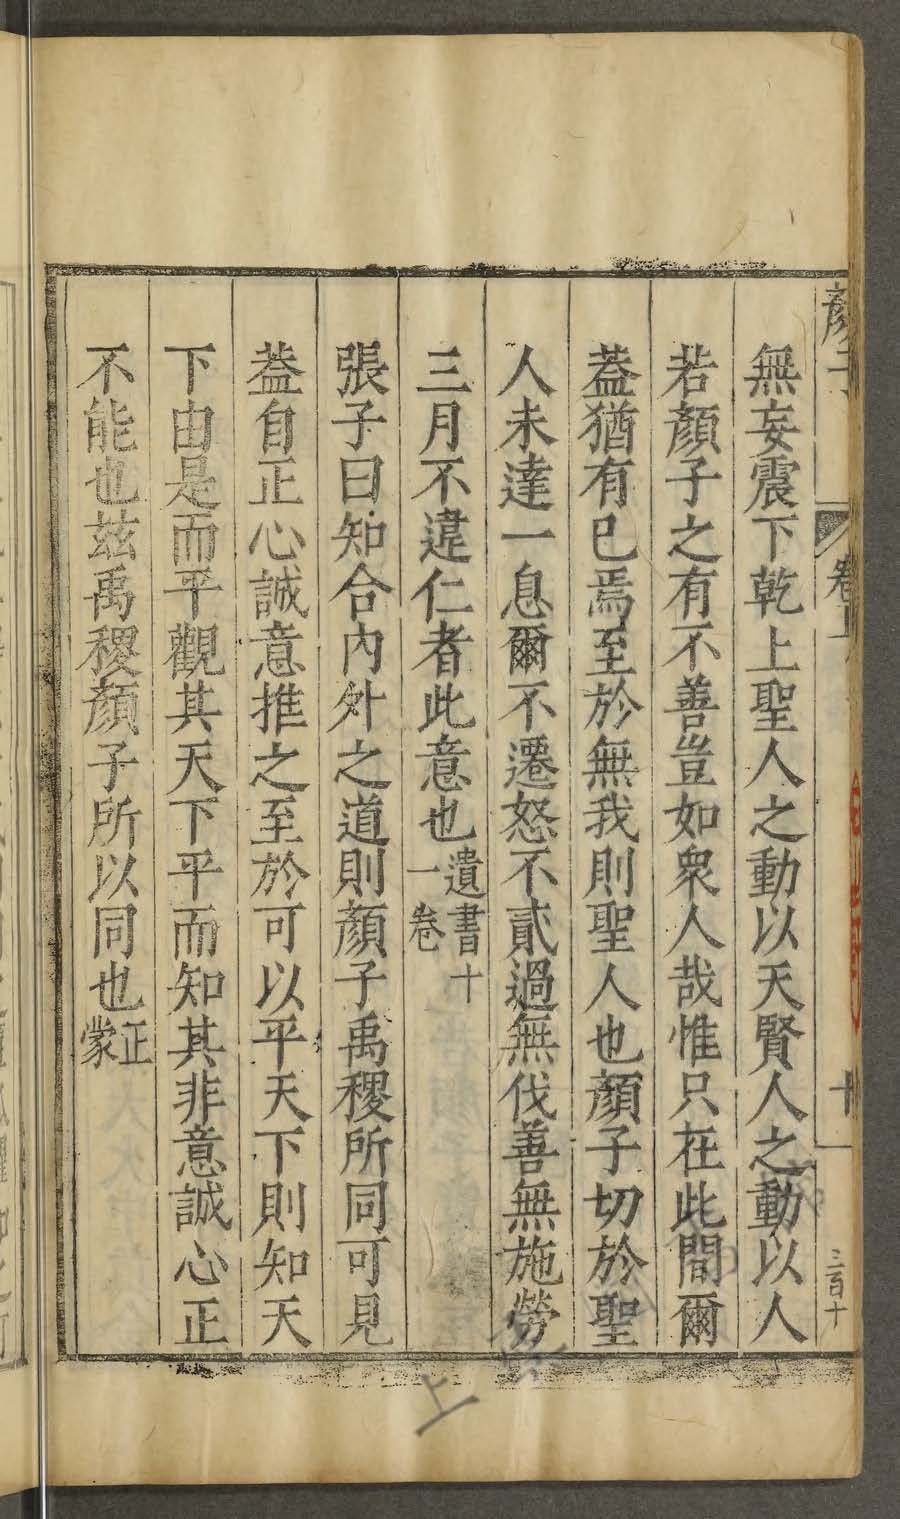 無妄震下乾上聖人之動以天賢人之動以人
若顏子之有不善豈如衆人哉惟只在此間爾
葢猶有已焉至於無我則聖人也顏子切於聖
人未達一息爾不遷怒不貳過無伐善無施勞
三月不違仁者此意也遺書十一卷
張子曰知合內外之道則顏子禹稷所同可見
葢自正心誠意推之至於可以平天下則知天
下由是而平觀其天下平而知其非意誠心正
不能也兹禹稷顏子所以同也正蒙
三百十
上